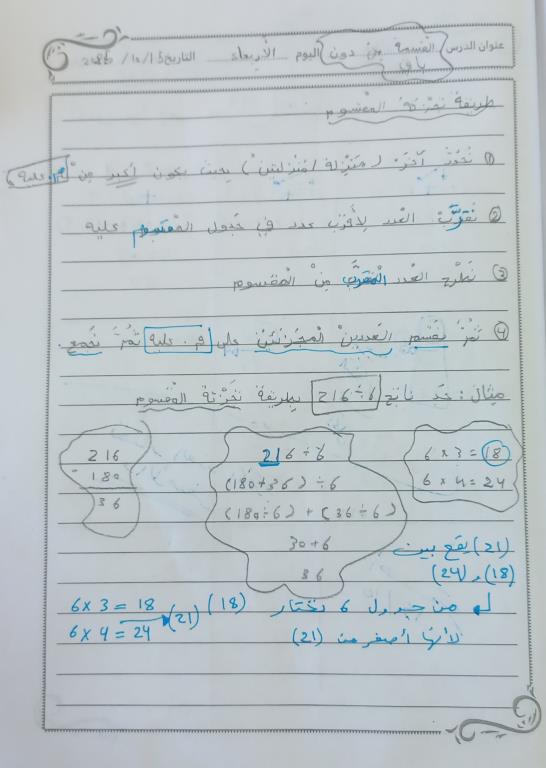 عنوان الدرس القسمة من دون باقي اليوم الأربعاء التاريخ 15/10/
طريقة تجزئة المقسوم
① نحوّط آخر (منزلة/منزلتين) بحيث يكون أكبر من م. عليه
② نقرّب العدد لأقرب عدد في جدول المقسوم عليه
③ نطرح العدد المقرّب من المقسوم
④ ثمّ نقسم العددين المجزئين على م. عليه ثمّ نجمع.
مثال: جد ناتج 216÷6 بطريقة تجزئة المقسوم
6 × 3 = 18
6 × 4 = 24
216 ÷ 6
(180+36) ÷ 6
(180÷6) + (36÷6)
30+6
36
216
180
36
(21) يقع بين
(18) و (24)
من جدول 6 نختار (18)
لأنها أصغر من (21)
6 × 3 = 18
(21)
6 × 4 = 24